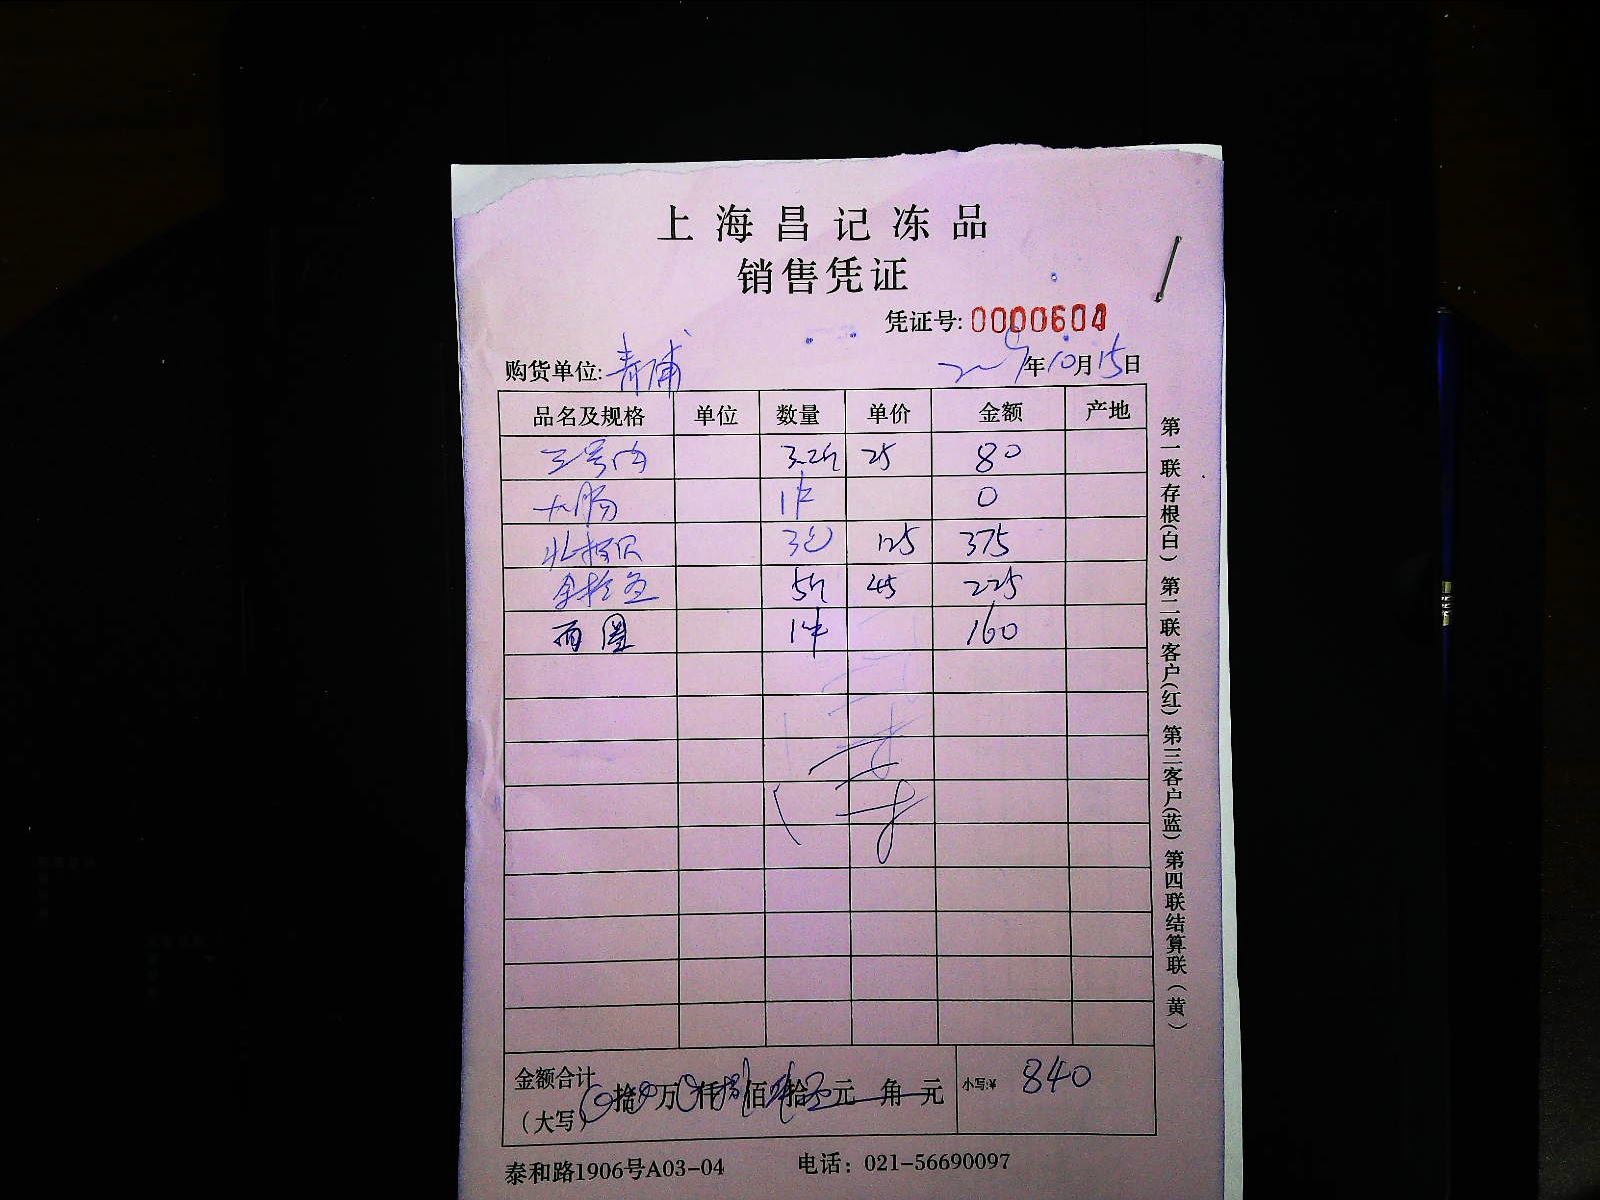 上海昌记冻品
销售凭证
凭证号: 0000604
购货单位: 青浦 年10月15日
品名及规格 单位 数量 单价 金额 产地
三号肉 3.2斤 25 80
大肠 1件 0
北极贝 3包 125 375
5斤 45 225
西 1件 160
金额合计
(大写) 拾 万 仟 捌佰 肆拾 元 角 元 小写:¥ 840
泰和路1906号A03-04 电话：021-56690097
第一联存根(白) 第二联客户(红) 第三客户(蓝) 第四联结算联(黄)